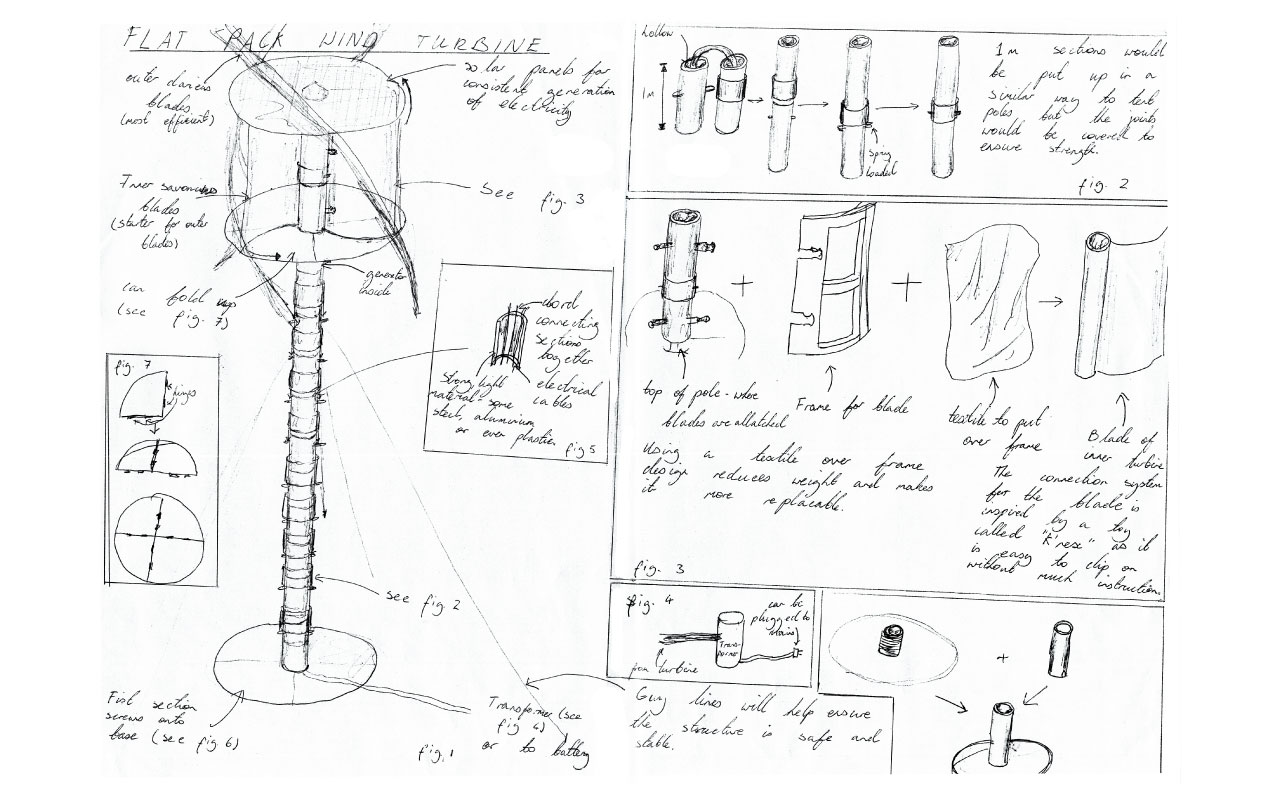 FLAT PACK WIND TURBINE
outer darieus
blades
(most efficient)
solar panels for
consistent generation
of electricity
Inner savonius
blades
(starter for outer
blades)
See fig. 3
can fold up
(see fig. 7)
generator
inside
fig. 7
hinges
chord
connecting
sections
together
electrical
cables
Strong light
material - some
steel, aluminium
or even plastic
fig 5
see fig 2
First section
screws onto
base (see fig 6)
fig. 1
Transformer (see
fig 4)
or to battery
hollow
1m
spring
loaded
1m sections would
be put up in a
similar way to tent
poles but the joints
would be covered to
ensure strength.
fig. 2
top of pole - where
blades are attatched
Frame for blade
textile to put
over frame
Blade of
inner turbine
Using a textile over frame
design reduces weight and makes
it more replacable.
The connection system
for the blade is
inspired by a toy
called "K'nex" as it
is easy to clip on
without much instruction.
fig. 3
fig. 4
can be
plugged to
mains
Trans-
former
from turbine
Guy lines will help ensure
the structure is safe and
stable.